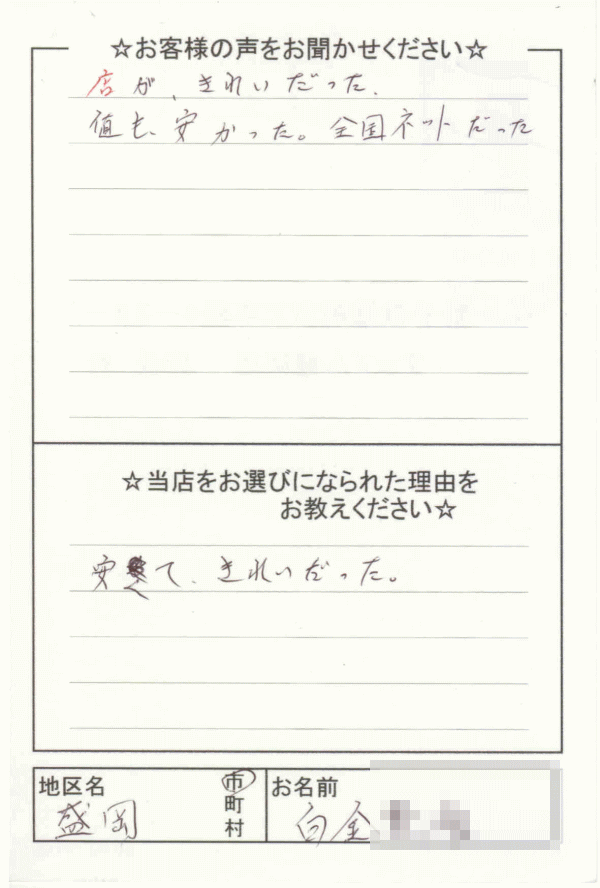 ☆お客様の声をお聞かせください☆
店が、きれいだった.
値も、安かった。全国ネットだった
☆当店をお選びになられた理由を
お教えください☆
安くて、きれいだった。
地区名
盛岡
市
町
村
お名前
白金